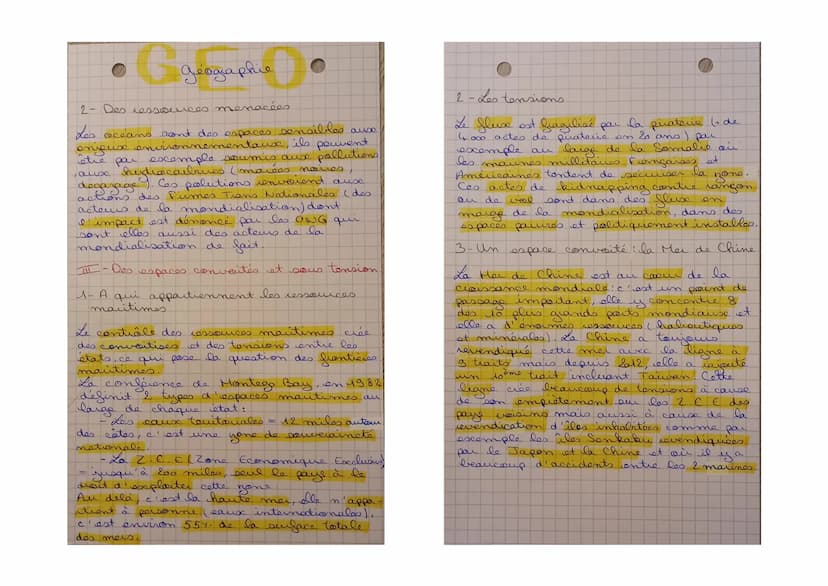 GEO
Géographie
2- Des ressources menacées
Les océans sont des espaces sensibles aux
enjeux environnementaux, ils peuvent
être par exemple soumis aux pollutions
aux hydrocarbures (marées noires,
dégazage). Ces polutions renvoient aux
actions des Firmes Trans Nationales (des
acteurs de la mondialisation) dont
l'impact est dénoncé par les ONG qui
sont elles aussi des acteurs de la
mondialisation de fait.
III - Des espaces convoités et sous tension
1- A qui appartiennent les ressources
maritimes
Le contrôle des ressources maritimes crée
des convoitises et des tensions entre les
états. ce qui pose la question des frontières
maritimes.
La conférence de Montego Bay, en 1982
définit 2 types d'espaces maritimes au
large de chaque état:
- Les eaux territoriales = 12 miles autour
des côtes, c'est une zone de souveraineté
nationale.
- La Z.E.E (Zone Economique Exclusive)
= jusqu'à 200 miles, seul le pays à le
droit d'exploiter cette zone
Au delà, c'est la haute mer, elle n'appa-
rtient à personne (eaux internationales).
c'est environ 55% de la surface totale
des mers.
2 - Les tensions
Le flux est fragilisé par la piraterie (+ de
4 000 actes de piraterie en 20 ans) par
exemple au large de la Somalie où
les marines militaires Françaises et
Américaines tentent de sécuriser la zone.
Ces actes de kidnapping contre rançon
ou de vol sont dans des flux en
marge de la mondialisation, dans des
espaces pauvres et politiquement instables.
3- Un espace convoité: la Mer de Chine
La Mer de Chine est au cœur de la
croissance mondiale: c'est un point de
passage important, elle y concentre 8
des 10 plus grands ports mondiaux et
elle a d'énormes ressources (halieutiques
et minérales). La Chine a toujours
revendiqué cette mer avec la ligne à
9 traits mais depuis 2012, elle a rajouté
un 10ème trait incluant Taiwan. Cette
ligne crée beaucoup de tensions à cause
de son empiètement sur les Z.E.E des
pays voisins mais aussi à cause de la
revendication d'îles inhabitées comme par
exemple les îles Senkaku revendiquées
par le Japon et la Chine et où il y a
beaucoup d'accidents entre les 2 marines.